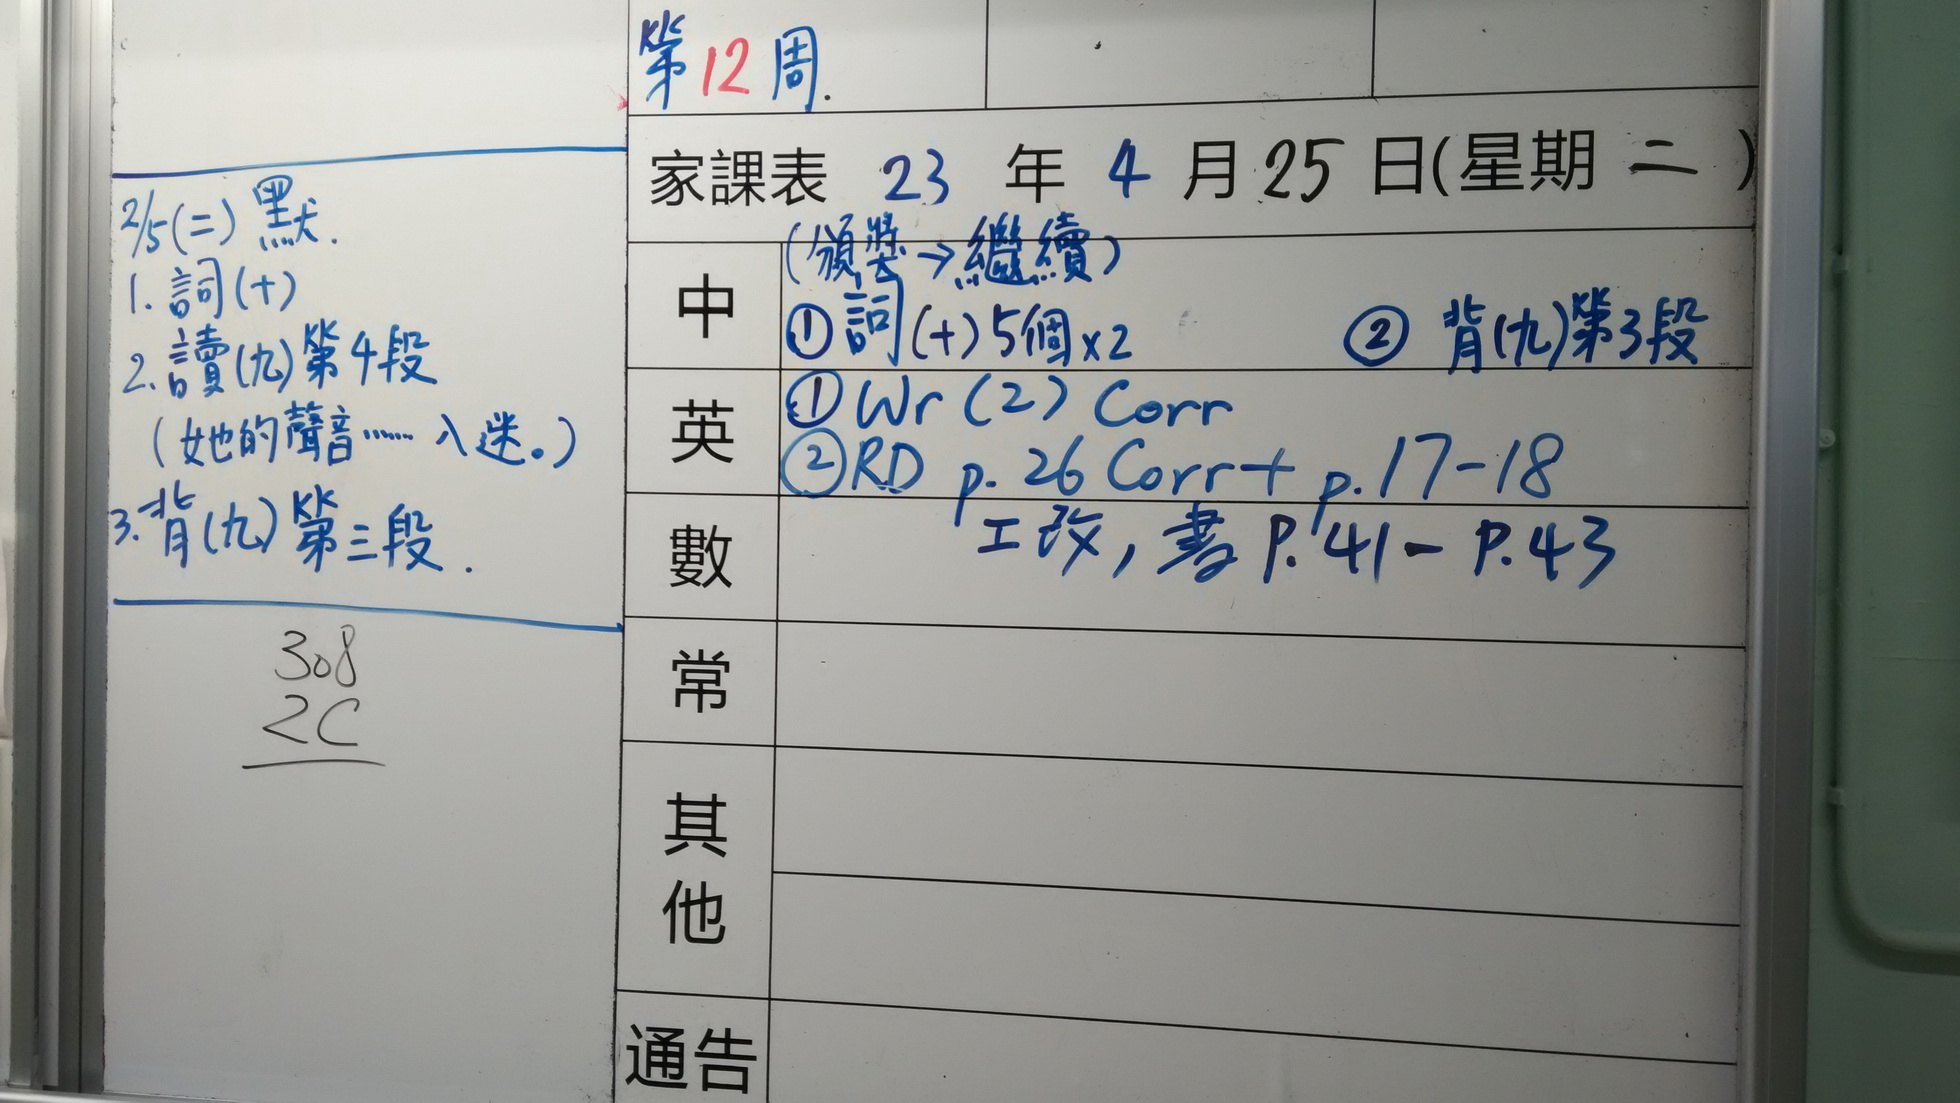 第12周.
家課表 23 年 4 月 25 日(星期 二 )
2/5(二) 默.
1. 詞(十)
2. 讀(九)第4段
(她的聲音……入迷。)
3. 背(九)第三段.
308
2C
中
(頒獎→繼續)
①詞(十)5個x2 ② 背(九)第3段
英
①Wr (2) Corr
②RD p. 26 Corr + p.17-18
數
工改, 書 P.41 - P.43
常
其他
通告